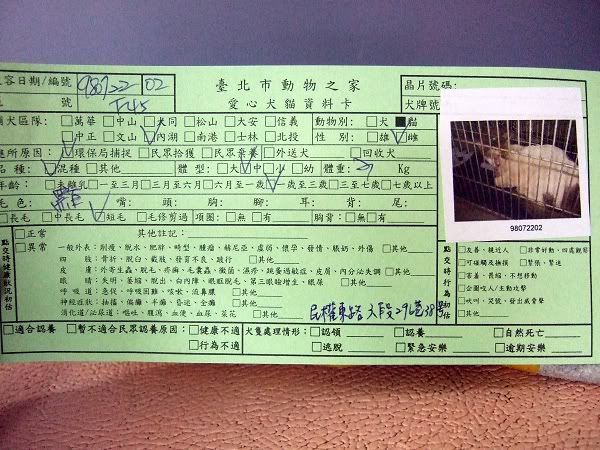 收容日期/編號 980722 02 臺北市動物之家 晶片號碼:
號 F45 愛心犬貓資料卡 犬牌號
捕犬區隊: □萬華 □中山 □大同 □松山 □大安 □信義 動物別: □犬 ■貓
□中正 □文山 □內湖 □南港 □士林 □北投 性別: □雄 □雌
進所原因: □環保局捕捉 □民眾拾獲 □民眾棄養 □外送犬 □回收犬
品種: □混種 □其他 體型: □大 □中 □小 □幼 體重: Kg
年齡: □未離乳 □一至三月 □三月至六月 □六月至一歲 □一歲至三歲 □三至七歲 □七歲以上
毛色: 嘴: 頭: 胸: 腳: 耳: 背: 尾:
□長毛 □中長毛 □短毛 □毛修剪過 項圈: □無 □有 胸背: □無 □有
98072202
點交時健康狀況初估
□正常 其他註記:
□異常 一般外表: 削瘦、脫水、肥胖、畸型、腫瘤、赫尼亞、虛弱、懷孕、發情、脹奶、外傷 □其他
四肢: 骨折、脫臼、截肢、發育不良、跛行 □其他
皮膚: 外寄生蟲、脫毛、疥癬、毛囊蟲、黴菌、濕疹、跳蚤過敏症、皮屑、內分泌失調 □其他
眼睛: 失明、萎縮、脫出、白內障、眼眶脫毛、第三眼瞼增生、眼屎 □其他
呼吸道: 急促、呼吸困難、咳嗽、流鼻膿 □其他
神經症狀: 抽搐、偏癱、半癱、昏迷、全癱 □其他
消化道/泌尿道: 嘔吐、腹瀉、血便、血尿、菜花 □其他
民權東路六段296巷38號
點交時行為初估
□友善、親近人 □非常好動、四處觀察
□可碰觸及撫摸 □緊張、緊迫
□害羞、畏縮、不想移動
□企圖咬人/主動攻擊
□吠叫/哭號、發出威脅聲
□其他
□適合認養 □暫不適合民眾認養原因: □健康不適 犬隻處理情形: □認領 □認養 □自然死亡
□行為不適 □逃脫 □緊急安樂 □逾期安樂